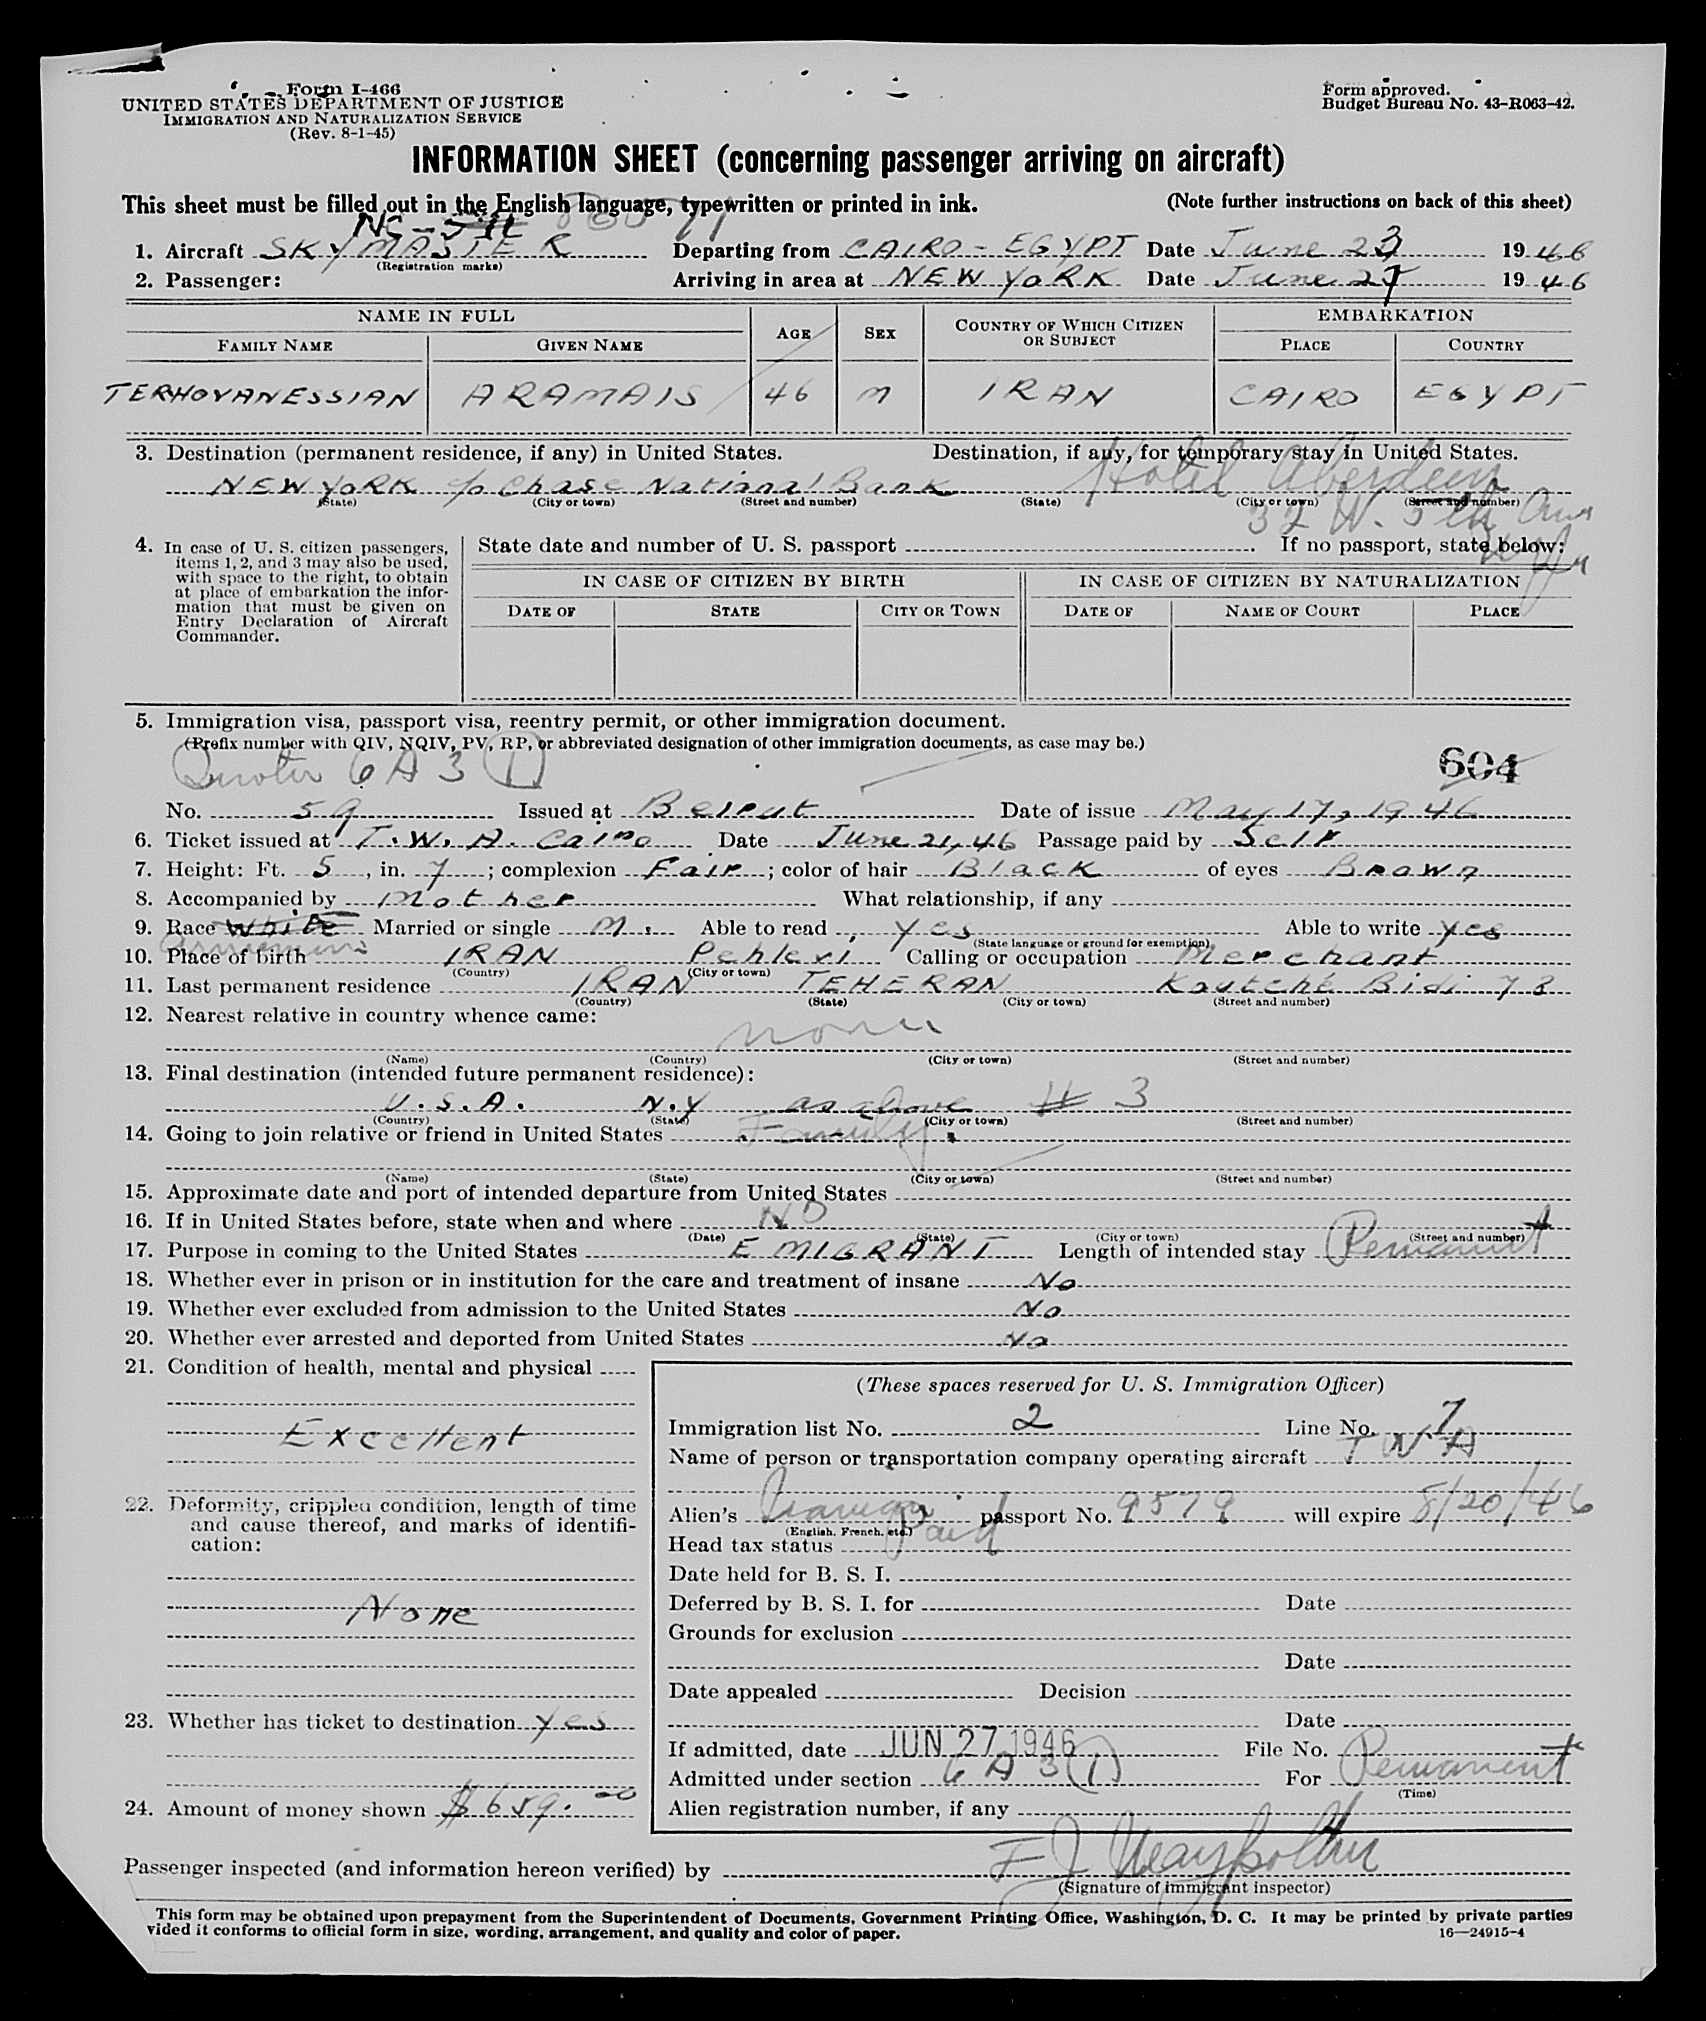 Form I-466
UNITED STATES DEPARTMENT OF JUSTICE
IMMIGRATION AND NATURALIZATION SERVICE
(Rev. 8-1-45)
Form approved.
Budget Bureau No. 43-R063-42.
INFORMATION SHEET (concerning passenger arriving on aircraft)
This sheet must be filled out in the English language, typewritten or printed in ink. (Note further instructions on back of this sheet)
1. Aircraft SKYMASTER Departing from CAIRO - EGYPT Date June 23 1946
(Registration marks)
2. Passenger: Arriving in area at NEW YORK Date June 27 1946
NAME IN FULL AGE SEX COUNTRY OF WHICH CITIZEN OR SUBJECT EMBARKATION
FAMILY NAME GIVEN NAME PLACE COUNTRY
TERHOVANESSIAN ARAMAIS 46 M IRAN CAIRO EGYPT
3. Destination (permanent residence, if any) in United States. Destination, if any, for temporary stay in United States.
NEW YORK c/o Chase National Bank Hotel Aberdeen
(State) (City or town) (Street and number) (State) (City or town) (Street and number)
32 W.
4. In case of U. S. citizen passengers, items 1, 2, and 3 may also be used, with space to the right, to obtain at place of embarkation the information that must be given on Entry Declaration of Aircraft Commander.
State date and number of U. S. passport If no passport, state below:
IN CASE OF CITIZEN BY BIRTH IN CASE OF CITIZEN BY NATURALIZATION
DATE OF STATE CITY OR TOWN DATE OF NAME OF COURT PLACE
5. Immigration visa, passport visa, reentry permit, or other immigration document.
(Prefix number with QIV, NQIV, PV, RP, or abbreviated designation of other immigration documents, as case may be.)
6 A 3 (1) 604
No. 59 Issued at Beirut Date of issue May 17, 1946
6. Ticket issued at T.W.A. Cairo Date June 21, 46 Passage paid by Self
7. Height: Ft. 5, in. 7; complexion Fair; color of hair Black of eyes Brown
8. Accompanied by Mother What relationship, if any
9. Race White Married or single M. Able to read, yes Able to write yes
(State language or ground for exemption)
Armenian
10. Place of birth IRAN Pehlevi Calling or occupation Merchant
(Country) (City or town)
11. Last permanent residence IRAN TEHERAN Koutché Bidi 78
(Country) (State) (City or town) (Street and number)
12. Nearest relative in country whence came:
none
(Name) (Country) (City or town) (Street and number)
13. Final destination (intended future permanent residence):
U.S.A. N.Y as above # 3
(Country) (State) (City or town) (Street and number)
14. Going to join relative or friend in United States Family.
(Name) (State) (City or town) (Street and number)
15. Approximate date and port of intended departure from United States
16. If in United States before, state when and where NO
(Date) (State) (City or town) (Street and number)
17. Purpose in coming to the United States EMIGRANT Length of intended stay Permanent
18. Whether ever in prison or in institution for the care and treatment of insane No
19. Whether ever excluded from admission to the United States No
20. Whether ever arrested and deported from United States No
21. Condition of health, mental and physical
Excellent
22. Deformity, crippled condition, length of time and cause thereof, and marks of identification:
None
23. Whether has ticket to destination yes
24. Amount of money shown $659.00
(These spaces reserved for U. S. Immigration Officer)
Immigration list No. 2 Line No. 7
Name of person or transportation company operating aircraft TWA
Alien's Iranian passport No. 9579 will expire 8/20/46
(English, French, etc.)
Head tax status Paid
Date held for B. S. I.
Deferred by B. S. I. for Date
Grounds for exclusion
Date
Date appealed Decision
Date
If admitted, date JUN 27 1946 File No.
Admitted under section 6 A 3 (1) For Permanent
(Time)
Alien registration number, if any
Passenger inspected (and information hereon verified) by
(Signature of immigrant inspector)
This form may be obtained upon prepayment from the Superintendent of Documents, Government Printing Office, Washington, D. C. It may be printed by private parties
vided it conforms to official form in size, wording, arrangement, and quality and color of paper. 16—24915-4